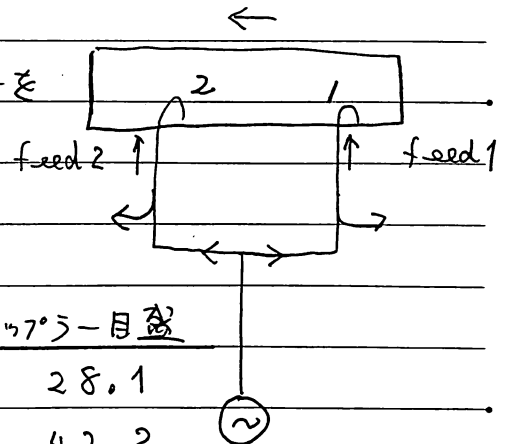 を
2 1
feed2 feed1
ップラー目盛
28.1